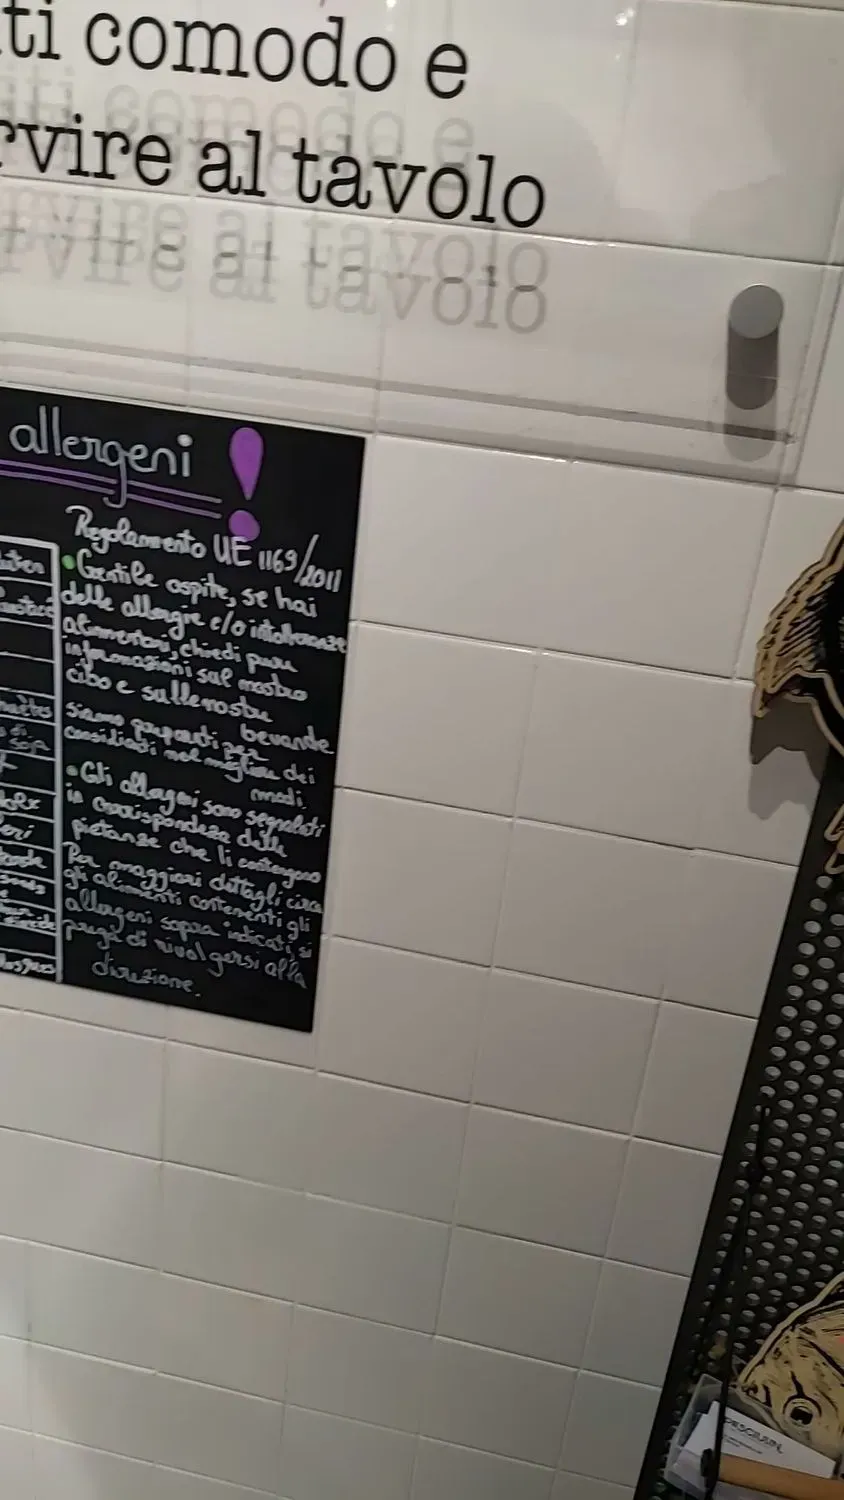 ti comodo e
rvire al tavolo
allergeni !
Regolamento UE 1169/2011
• Gentile ospite, se hai
delle allergie e/o intolleranze
alimentari, chiedi pure
informazioni sul nostro
cibo e sulle nostre
bevande
Siamo preparati per
consigliarti nel migliore dei
modi.
• Gli allergeni sono segnalati
in corrispondenza delle
pietanze che li contengono
Per maggiori dettagli circa
gli alimenti contenenti gli
allergeni sopra indicati, si
prega di rivolgersi alla
direzione.
soja